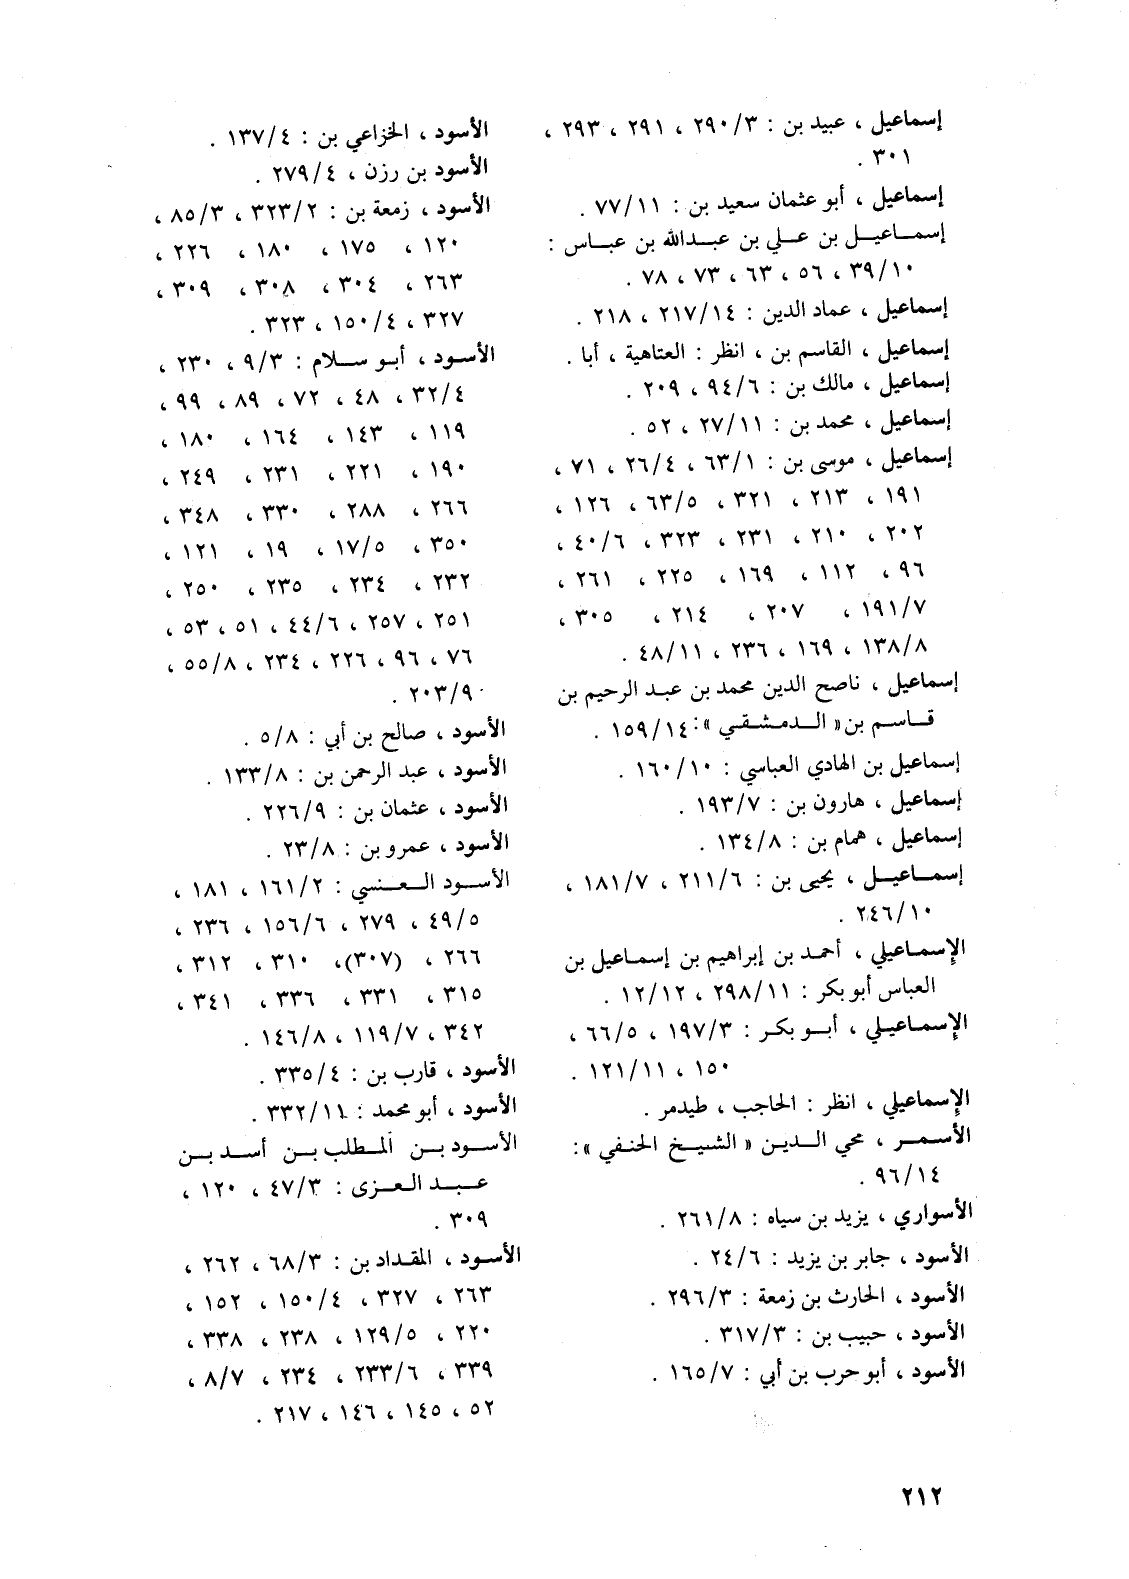 إسماعيل ، عبيد بن : ٢٩٠/٣ ، ٢٩١ ، ٢٩٣ ،
٣٠١ .
إسماعيل ، أبو عثمان سعيد بن : ٧٧/١١ .
إسماعيل بن علي بن عبدالله بن عباس :
٣٩/١٠ ، ٥٦ ، ٦٣ ، ٧٣ ، ٧٨ .
إسماعيل ، عماد الدين : ٢١٧/١٤ ، ٢١٨ .
إسماعيل ، القاسم بن ، انظر : العتاهية ، أبا .
إسماعيل ، مالك بن : ٩٤/٦ ، ٢٠٩ .
إسماعيل ، محمد بن : ٢٧/١١ ، ٥٢ .
إسماعيل ، موسى بن : ٦٣/١ ، ٢٦/٤ ، ٧١ ،
١٩١ ، ٢١٣ ، ٣٢١ ، ٦٣/٥ ، ١٢٦ ،
٢٠٢ ، ٢١٠ ، ٢٣١ ، ٣٢٣ ، ٤٠/٦ ،
٩٦ ، ١١٢ ، ١٦٩ ، ٢٢٥ ، ٢٦١ ،
١٩١/٧ ، ٢٠٧ ، ٢١٤ ، ٣٠٥ ،
١٣٨/٨ ، ١٦٩ ، ٢٣٦ ، ٤٨/١١ .
إسماعيل ، ناصح الدين محمد بن عبد الرحيم بن
قاسم بن « الدمشقي » : ١٥٩/١٤ .
إسماعيل بن الهادي العباسي : ١٦٠/١٠ .
إسماعيل ، هارون بن : ١٩٣/٧ .
إسماعيل ، همام بن : ١٣٤/٨ .
إسماعيل ، يحيى بن : ٢١١/٦ ، ١٨١/٧ ،
٢٤٦/١٠ .
الإسماعيلي ، أحمد بن إبراهيم بن إسماعيل بن
العباس أبو بكر : ٢٩٨/١١ ، ١٢/١٢ .
الإسماعيلي ، أبو بكر : ١٩٧/٣ ، ٦٦/٥ ،
١٥٠ ، ١٢١/١١ .
الإسماعيلي ، انظر : الحاجب ، طيدمر .
الأسمر ، محي الدين « الشيخ الحنفي » :
٩٦/١٤ .
الأسواري ، يزيد بن سياه : ٢٦١/٨ .
الأسود ، جابر بن يزيد : ٢٤/٦ .
الأسود ، الحارث بن زمعة : ٢٩٦/٣ .
الأسود ، حبيب بن : ٣١٧/٣ .
الأسود ، أبو حرب بن أبي : ١٦٥/٧ .
الأسود ، الخزاعي بن : ١٣٧/٤ .
الأسود بن رزن ، ٢٧٩/٤ .
الأسود ، زمعة بن : ٣٢٣/٢ ، ٨٥/٣ ،
١٢٠ ، ١٧٥ ، ١٨٠ ، ٢٢٦ ،
٢٦٣ ، ٣٠٤ ، ٣٠٨ ، ٣٠٩ ،
٣٢٧ ، ١٥٠/٤ ، ٣٢٣ .
الأسود ، أبو سلام : ٩/٣ ، ٢٣٠ ،
٣٢/٤ ، ٤٨ ، ٧٢ ، ٨٩ ، ٩٩ ،
١١٩ ، ١٤٣ ، ١٦٤ ، ١٨٠ ،
١٩٠ ، ٢٢١ ، ٢٣١ ، ٢٤٩ ،
٢٦٦ ، ٢٨٨ ، ٣٣٠ ، ٣٤٨ ،
٣٥٠ ، ١٧/٥ ، ١٩ ، ١٢١ ،
٢٣٢ ، ٢٣٤ ، ٢٣٥ ، ٢٥٠ ،
٢٥١ ، ٢٥٧ ، ٤٤/٦ ، ٥١ ، ٥٣ ،
٧٦ ، ٩٦ ، ٢٢٦ ، ٢٣٤ ، ٥٥/٨ ،
٢٠٣/٩ .
الأسود ، صالح بن أبي : ٥/٨ .
الأسود ، عبد الرحمن بن : ١٣٣/٨ .
الأسود ، عثمان بن : ٢٢٦/٩ .
الأسود ، عمرو بن : ٢٣/٨ .
الأسود العنسي : ١٦١/٢ ، ١٨١ ،
٤٩/٥ ، ٢٧٩ ، ١٥٦/٦ ، ٢٣٦ ،
٢٦٦ ، (٣٠٧)، ٣١٠ ، ٣١٢ ،
٣١٥ ، ٣٣١ ، ٣٣٦ ، ٣٤١ ،
٣٤٢ ، ١١٩/٧ ، ١٤٦/٨ .
الأسود ، قارب بن : ٣٣٥/٤ .
الأسود ، أبو محمد : ٣٣٢/١١ .
الأسود بن المطلب بن أسد بن
عبد العزى : ٤٧/٣ ، ١٢٠ ،
٣٠٩ .
الأسود ، المقداد بن : ٦٨/٣ ، ٢٦٢ ،
٢٦٣ ، ٣٢٧ ، ١٥٠/٤ ، ١٥٢ ،
٢٢٠ ، ١٢٩/٥ ، ٢٣٨ ، ٣٣٨ ،
٣٣٩ ، ٢٣٣/٦ ، ٢٣٤ ، ٨/٧ ،
٥٢ ، ١٤٥ ، ١٤٦ ، ٢١٧ .
٢١٢